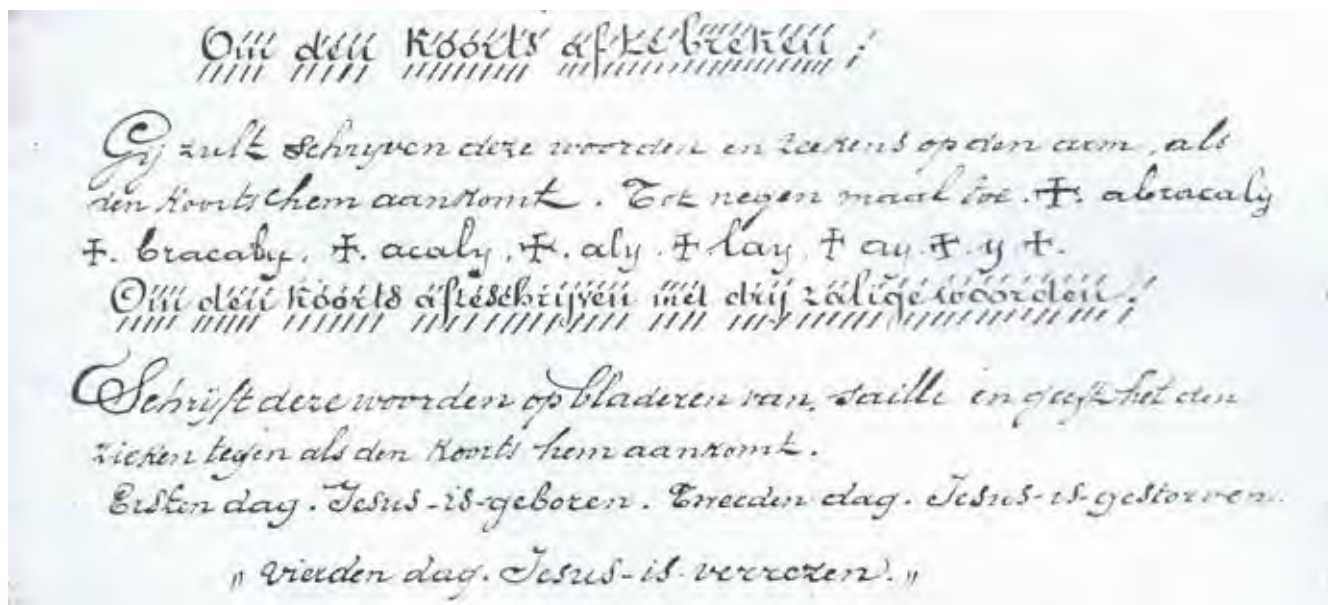 Om den koorts aftebreken !
Gij zult schrijven deze woorden en teekens op den arm, als
den koorts hem aankomt. Tot negen maal toe. ✝. abracaly
✝. bracaly. ✝. acaly. ✝. aly. ✝ lay. ✝ ay. ✝. y ✝.
Om den koorts afteschrijven met drij zalige woorden !
Schrijft deze woorden op bladeren van. saille en geeft het den
zieken tegen als den koorts hem aankomt.
Ersten dag. Jesus-is-geboren. Tweeden dag. Jesus-is-gestorven.
„ vierden dag. Jesus-is-verrezen. „